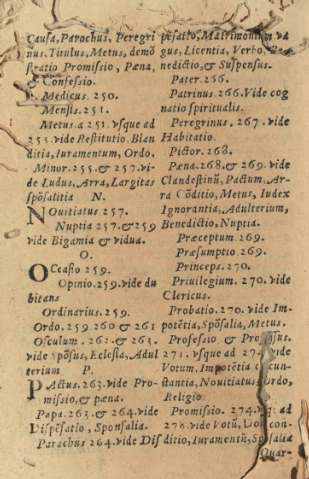 Causa, Parachus, Peregri
nus, Titulus, Metus, demõ
stratio Promissio, Pæna,
& Confessio.
Medicus. 250.
Mensis. 251.
Metus. a 251. vsque ad
255. vide Restitutio. Blan
ditia, Iuramentum, Ordo.
Minor. 255. & 257. vi-
de Ludus, Arra, Largitas
spõsalitia N.
NOuitiatus 257.
Nuptia 257. & 259
vide Bigamia & vidua.
O.
OCcasio 259.
Opinio. 259. vide du
bitans
Ordinarius. 259.
Ordo. 259 260 & 261
Osculum. 262. & 263.
vide Spõsus, Eclesia, Adul
terium P.
PActus. 263. vide Pro-
missio, & pæna.
Papa. 263. & 264. vide
Dispẽsatio, Sponsalia.
Parachus 264. vide Dis
pẽsatio, Matrimonium va
gus, Licentia, Verbo, Be
nedictio, & Suspensus.
Pater. 266.
Patrinus. 266. Vide cog
natio spiritualis.
Peregrinus. 267. vide
Habitatio.
Pictor. 268.
Pæna. 268. & 269. vide
Clandestinũ, Pactum, Ar-
ra Cõditio, Metus, Iudex
Ignorantia, Adulterium,
Benedictio, Nuptia.
Præceptum. 269.
Præsumptio 269.
Princeps. 270.
Priuilegium. 270. vide
Clericus.
Probatio. 270. vide Im-
potẽtia, Spõsalia, Metus.
Professio & Professus.
271. vsque ad 274. vide
Votum, Impotẽtia
stantia, Nouitiatus, Ordo,
Religio.
Promissio. 274. ad
278. vide Votũ,
ditio, Iuramentũ, Spõsalia
Quar-